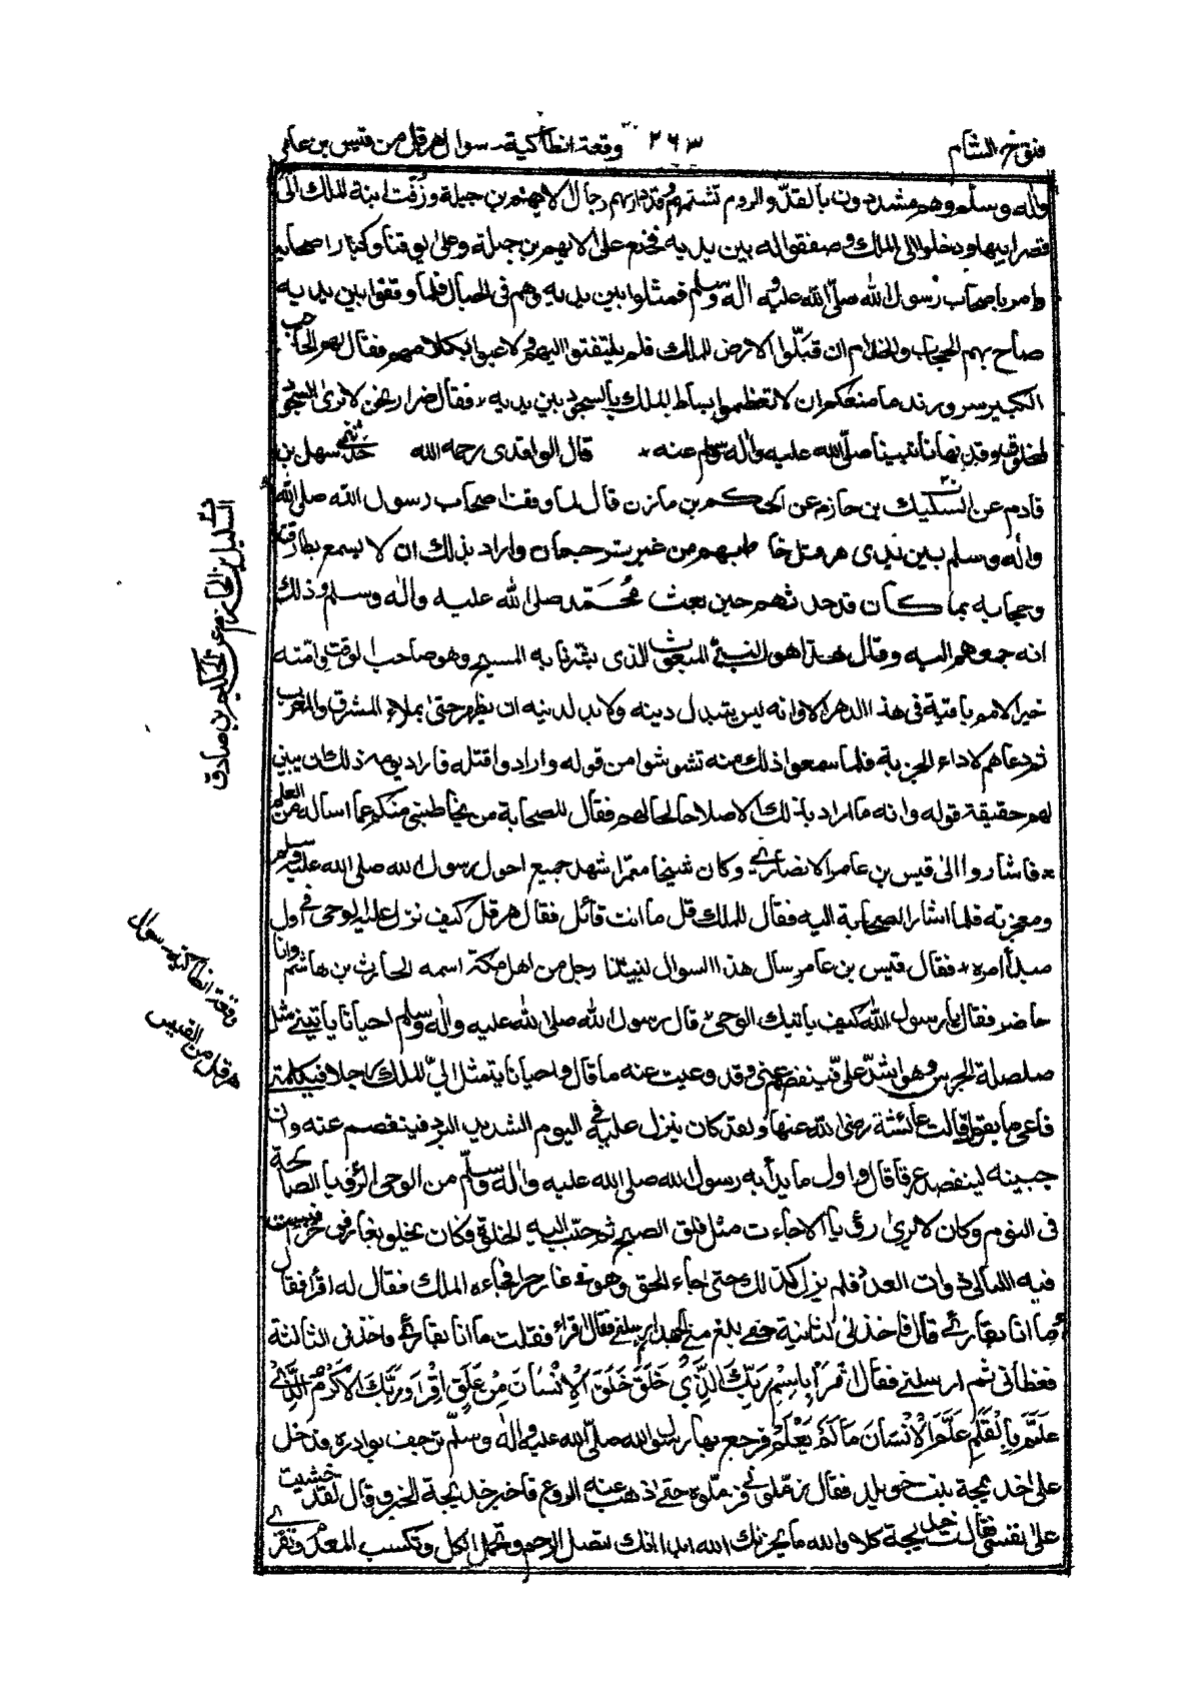 فتوح الشام ٢٦٣ وقعة انطاكية سوال هرقل من قيس بن عامر
واله وسلم وهم مشددون بالقد والروم تشتمهم وقد دارهم رجال الايهم بن جبلة وزفت ابنة الملك الى
قصر ابيها ودخلوا الى الملك وصفقوا له بين يديه فخلع على الايهم بن جبلة وعلى يوقنا وكبار اصحابه
وامر باصحاب رسول الله صلى الله عليه و اله وسلم فمثلوا بين يديه وهم فى الحبال فلما وقفوا بين يديه
صاح بهم الحجاب والغلمان ان قبلوا الارض للملك فلم يلتفتوا اليهم ولا عبوا بكلامهم فقال لهم الحاجب
الكبير سرورند ما منعكم ان لا تعظموا بساط الملك بالسجود بين يديه * فقال ضرار نحن لا نرى السجود
لمخلوق وقد نهانا نبينا صلى الله عليه واله وسلم عنه * قال الواقدى رحمه الله حدثنى سهل بن
قادم عن السكيك بن حازم عن الحكم بن مازن قال لما وقف اصحاب رسول الله صلى الله
واله وسلم بين يدى هرقل خاطبهم من غير ترجمان واراد بذلك ان لا يسمع بطارقته
وحجابه بما كان قد حدثهم حين بعث محمد صلى الله عليه واله وسلم وذلك
انه جمعهم اليه وقال هذا هو النبى المبعوث الذى بشرنا به المسيح وهو صاحب الوقت وامته
خير الامم باقية فى هذا الدهر الا وانه ليس يتبدل دينه ولا بد لدينه ان يظهر حتى يملاء المشرق والمغرب
ثم دعاهم لاداء الجزية فلما سمعوا ذلك منه تشوشوا من قوله وارادوا قتله فاراد يومه ذلك ان يبنى
لهم حقيقة قوله وانه ما اراد بذلك الا صلاحا لحالهم فقال للصحابة من يخاطبنى منكم عما اساله من العلم
* فاشاروا الى قيس بن عامر الانصارى وكان شيخا معمرا شهد جميع احول رسول الله صلى الله عليه وسلم
ومعجزته فلما اشار الصحابة اليه فقال للملك قل ما انت قائل فقال هرقل كيف نزل عليه الوحى فى اول
مبدأ امره * فقال قيس بن عامر سال هذا السوال لنبينا رجل من اهل مكة اسمه الحارث بن هاشم وانا
حاضر فقال يا رسول الله كيف ياتيك الوحى قال رسول الله صلى الله عليه واله وسلم احيانا ياتينى مثل
صلصلة الجرس وهو اشد على فينفصم عنى وقد وعيت عنه ما قال واحيانا يتمثل الى الملك رجلا فيكلمنى
فاعى ما يقول قالت عائشة رضى الله عنها ولقد كان ينزل عليه فى اليوم الشديد البرد فينفصم عنه وان
جبينه لينفصد عرقا قال واول ما بدأ به رسول الله صلى الله عليه واله وسلم من الوحى الرؤيا الصالحة
فى النوم وكان لا يرى رؤيا الا جاءت مثل فلق الصبح ثم حبب اليه الخلاة فكان يخلو بغار فى حراء فيتحنث
فيه الليالى ذوات العدد فلم يزل كذلك حتى جاء الحق وهو فى غار حراء فجاءه الملك فقال له اقرأ فقال
ما انا بقارئ قال فاخذنى الثانية حتى بلغ منى الجهد ثم ارسلنى فقال اقراء فقلت ما انا بقارئ واخذنى الثالثة
فغطانى ثم ارسلنى فقال اقرأ باسم ربك الذي خلق خلق الإنسان من علق اقرأ وربك الأكرم الذي
علم بالقلم علم الإنسان ما لم يعلم فرجع بها رسول الله صلى الله عليه واله وسلم ترجف بوادره فدخل
على خديجة بنت خويلد فقال زملونى فزملوه حتى اذهب عنه الروع فاخبر خديجة الخبر وقال لقد خشيت
على نفسى فقالت خديجة كلا والله ما يحزنك الله ابدا انك لتصل الرحم وتحمل الكل وتكسب المعدوم وتقرى
السليل بن الحازم عن الحكم بن صادق
وقعة انطاكية سوال
هرقل من القيس